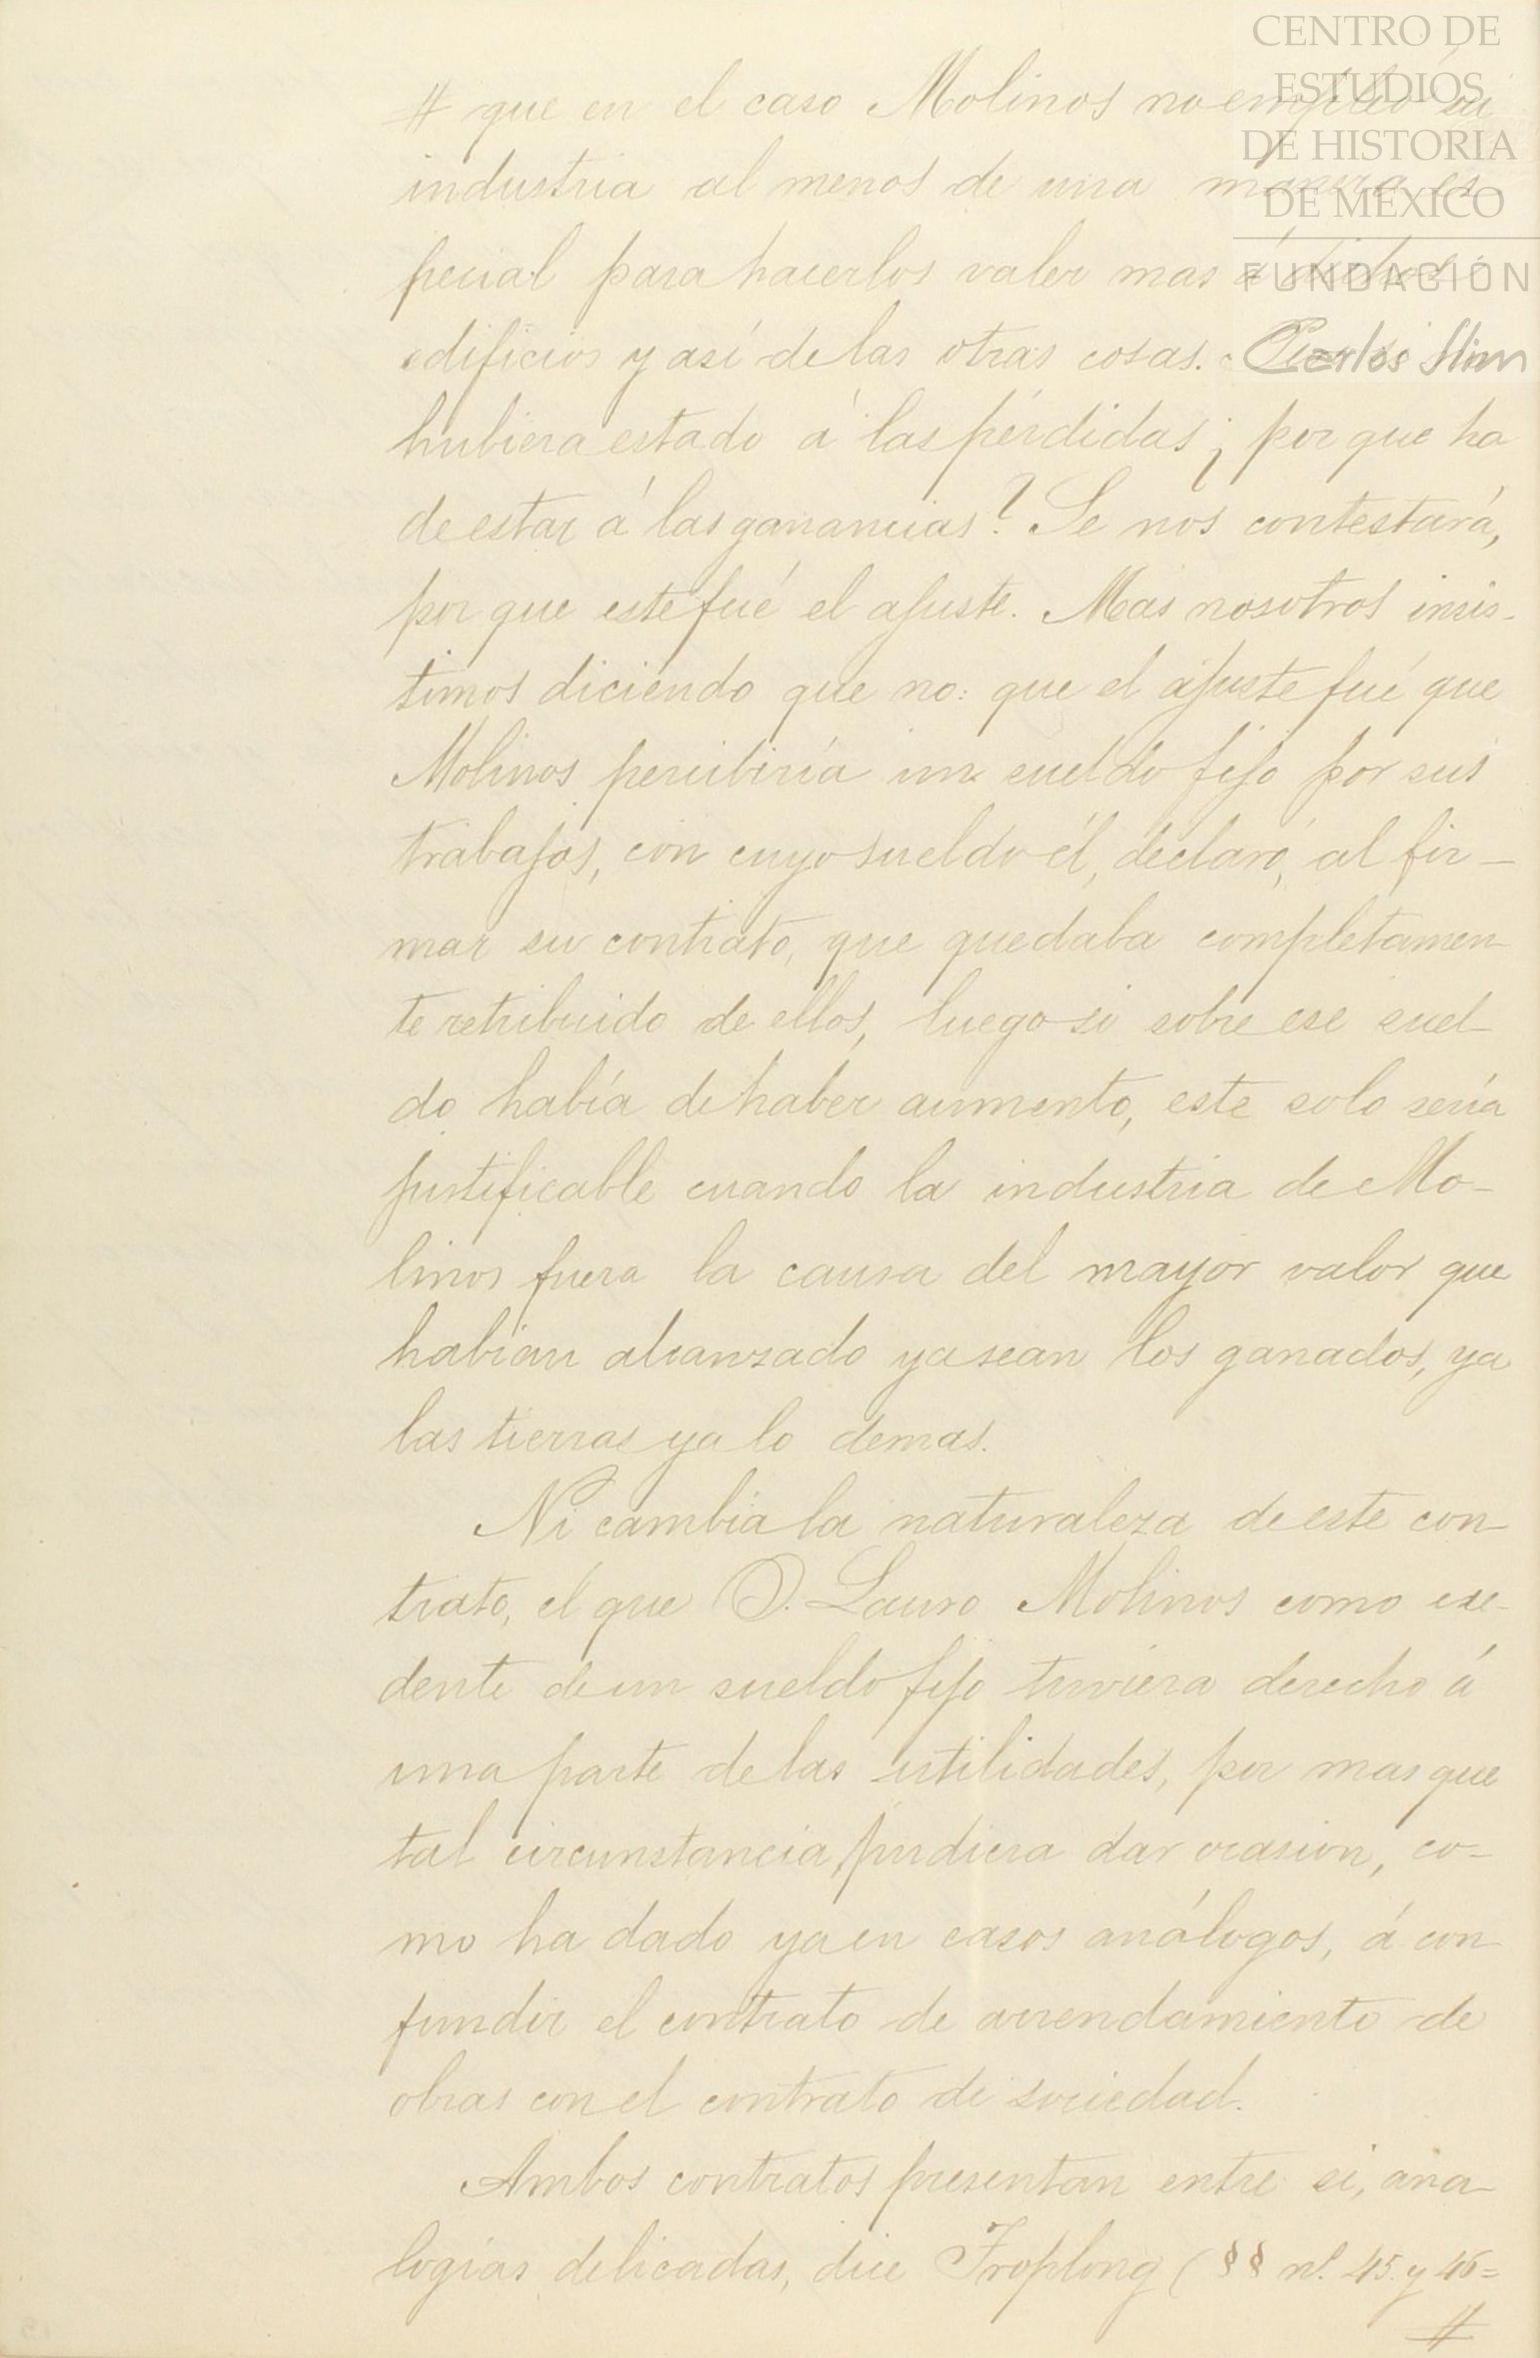 CENTRO DE
ESTUDIOS
DE HISTORIA
DE MÉXICO
FUNDACIÓN
Carlos Slim
# que en el caso Molinos no empleó su
industria al menos de una manera es-
pecial para hacerlos valer mas á dichos
edificios y así de las otras cosas. Pues si no
hubiera estado á las pérdidas ¿ por que ha
de estar á las ganancias? Se nos contestará,
por que este fué el ajuste. Mas nosotros insis-
timos diciendo que no: que el ajuste fué que
Molinos percibiría un sueldo fijo por sus
trabajos, con cuyo sueldo él, declaró, al fir-
mar su contrato, que quedaba completamen-
te retribuido de ellos, luego si sobre ese suel-
do había de haber aumento, este solo sería
justificable cuando la industria de Mo-
linos fuera la causa del mayor valor que
habian alcanzado ya sean los ganados, ya
las tierras ya lo demas.
Ni cambia la naturaleza de este con-
trato, el que D. Lauro Molinos como exe-
dente de un sueldo fijo tuviera derecho á
una parte de las utilidades, por mas que
tal circunstancia pudiera dar ocasion, co-
mo ha dado ya en casos análogos, á con-
fundir el contrato de arrendamiento de
obras con el contrato de sociedad.
Ambos contratos presentan entre si, ana-
logías delicadas, dice Troplong ( §§ nº. 45. y 46=
#